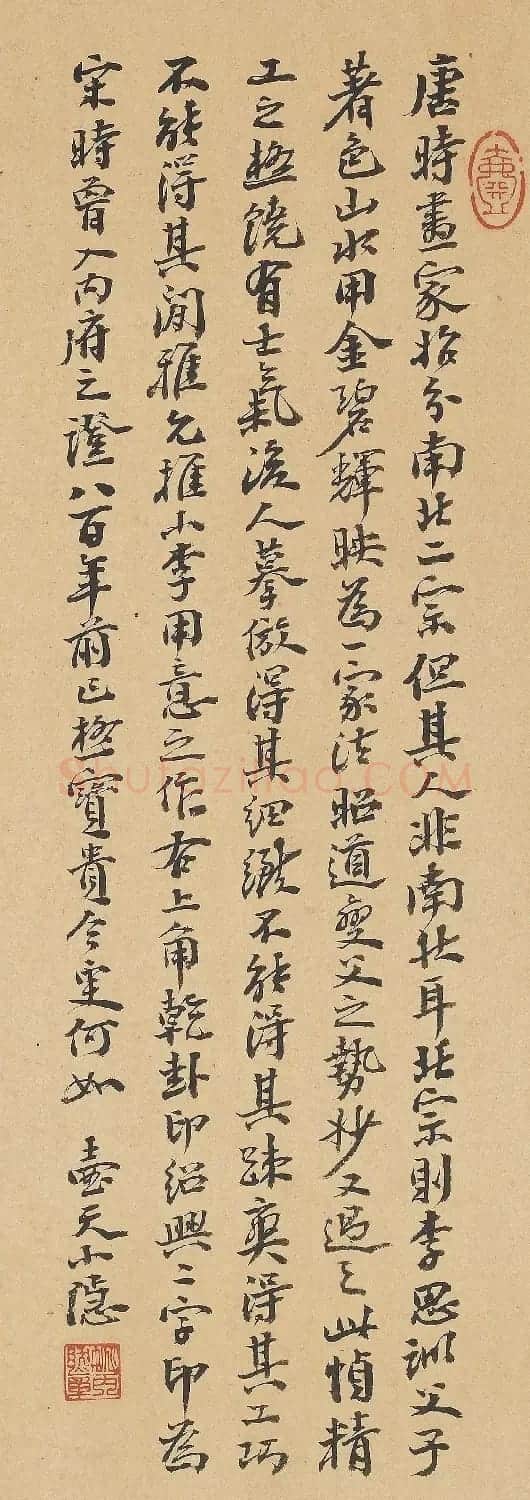 唐時畫家始分南北二宗但其人非南北耳北宗則李思訓父子
著色山水用金碧輝映為一家法昭道變父之勢妙又過之此幀精
工之極饒有士氣後人摹倣得其細緻不能得其疎爽得其工巧
不能得其閒雅允推小李用意之作右上角乾卦印紹興二字印為
宋時曾入內府之證八百年前已極寶貴今更何如 壺天小隱
shufaziliao.COM